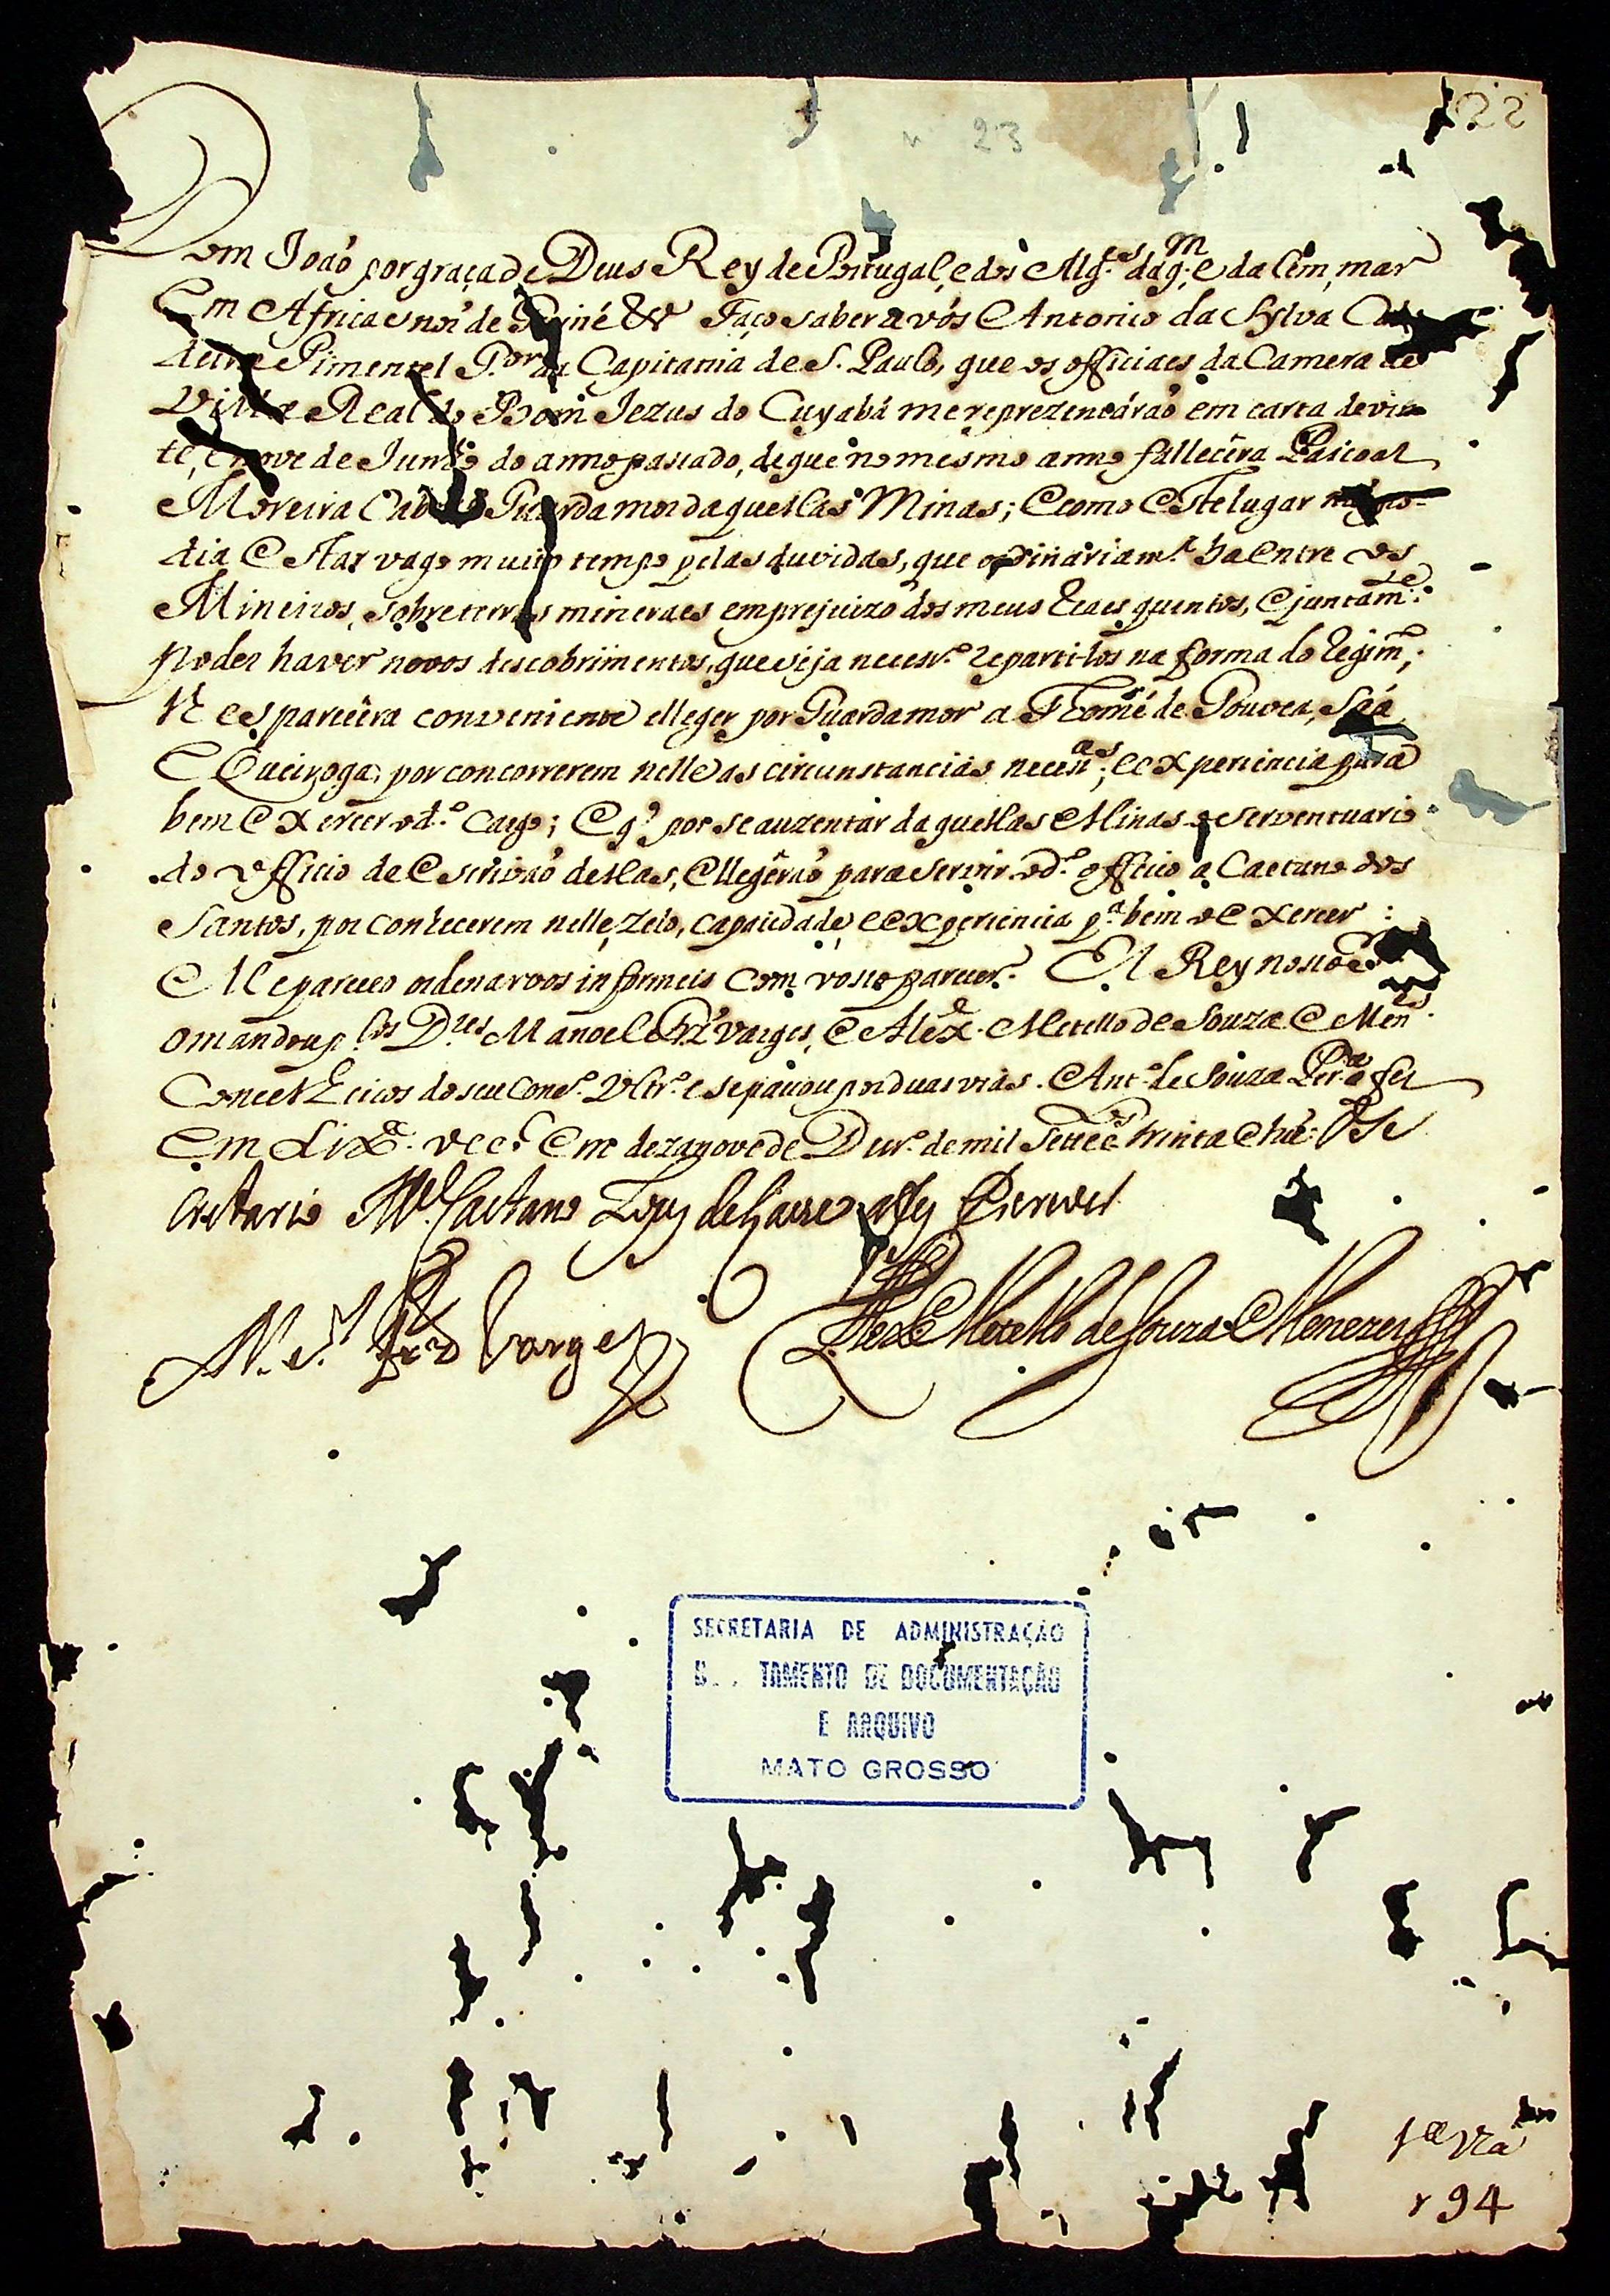 23
Dom João por graça de Deus Rey de Portugal, e dos Alg.es daq.m e dalém, mar
Em Africa Snor de Guiné &c Faço saber a vós Antonio da Sylva Cal
deira Pimentel G.or da Capitania de S. Paulo, que os officiaes da Camera de
Villa Real do Bom Jezus do Cuyabá me reprezentárão em carta de vin
te, e nove de Junho do anno passado, de que no mesmo anno fallecêra Pascoal
Moreira Cabral Guarda mor daquellas Minas; E como Este lugar não po-
dia Estar vago muito tempo pelas duvidas, que ordinariam.te ha Entre os
Mineiros, sobre terras mineraes em prejuizo dos meus Reaes quintos, E juntam.te
poder haver novos descobrimentos, que seja necess.o repartilos na forma do Regim.to;
lhes parecêra conveniente elleger por Guarda mor a Thomé de Gouvea, Sáá
E Queiroga, por concorrerem nelle as circunstancias necess.as; e experiencia para
bem Exercer o d.o cargo; E q' por se auzentar daquellas Minas o serventuario
do officio de Escrivão dellas, Ellegêrão para servir o d.o officio a Caetano dos
Santos, por conhecerem nelle, zelo, capacidade, e experiencia p.a bem o Exercer:
Me pareceo ordenarvos informeis com vosso parecer. El Rey nosso S.or
o mandou p.los D.res Manoel Frz' Varges, E Alex.e Metello de Souza E Men.s
Conselheiros do seu Cons.o Ultr.o e se passou por duas vias. Ant.o de Souza Per.a a fez
Em Lix.a occ.l Em dezanove de Dezr.o de mil Settec.os trinta E hũ. O Se
cretario M.el Caetano Lopes de Lavre a fez Escrever
M.el Frz Varges
Alex.e Metello de Souza E Menezes
SECRETARIA DE ADMINISTRAÇÃO
D.. TAMENTO DE DOCUMENTAÇÃO
E ARQUIVO
MATO GROSSO
194